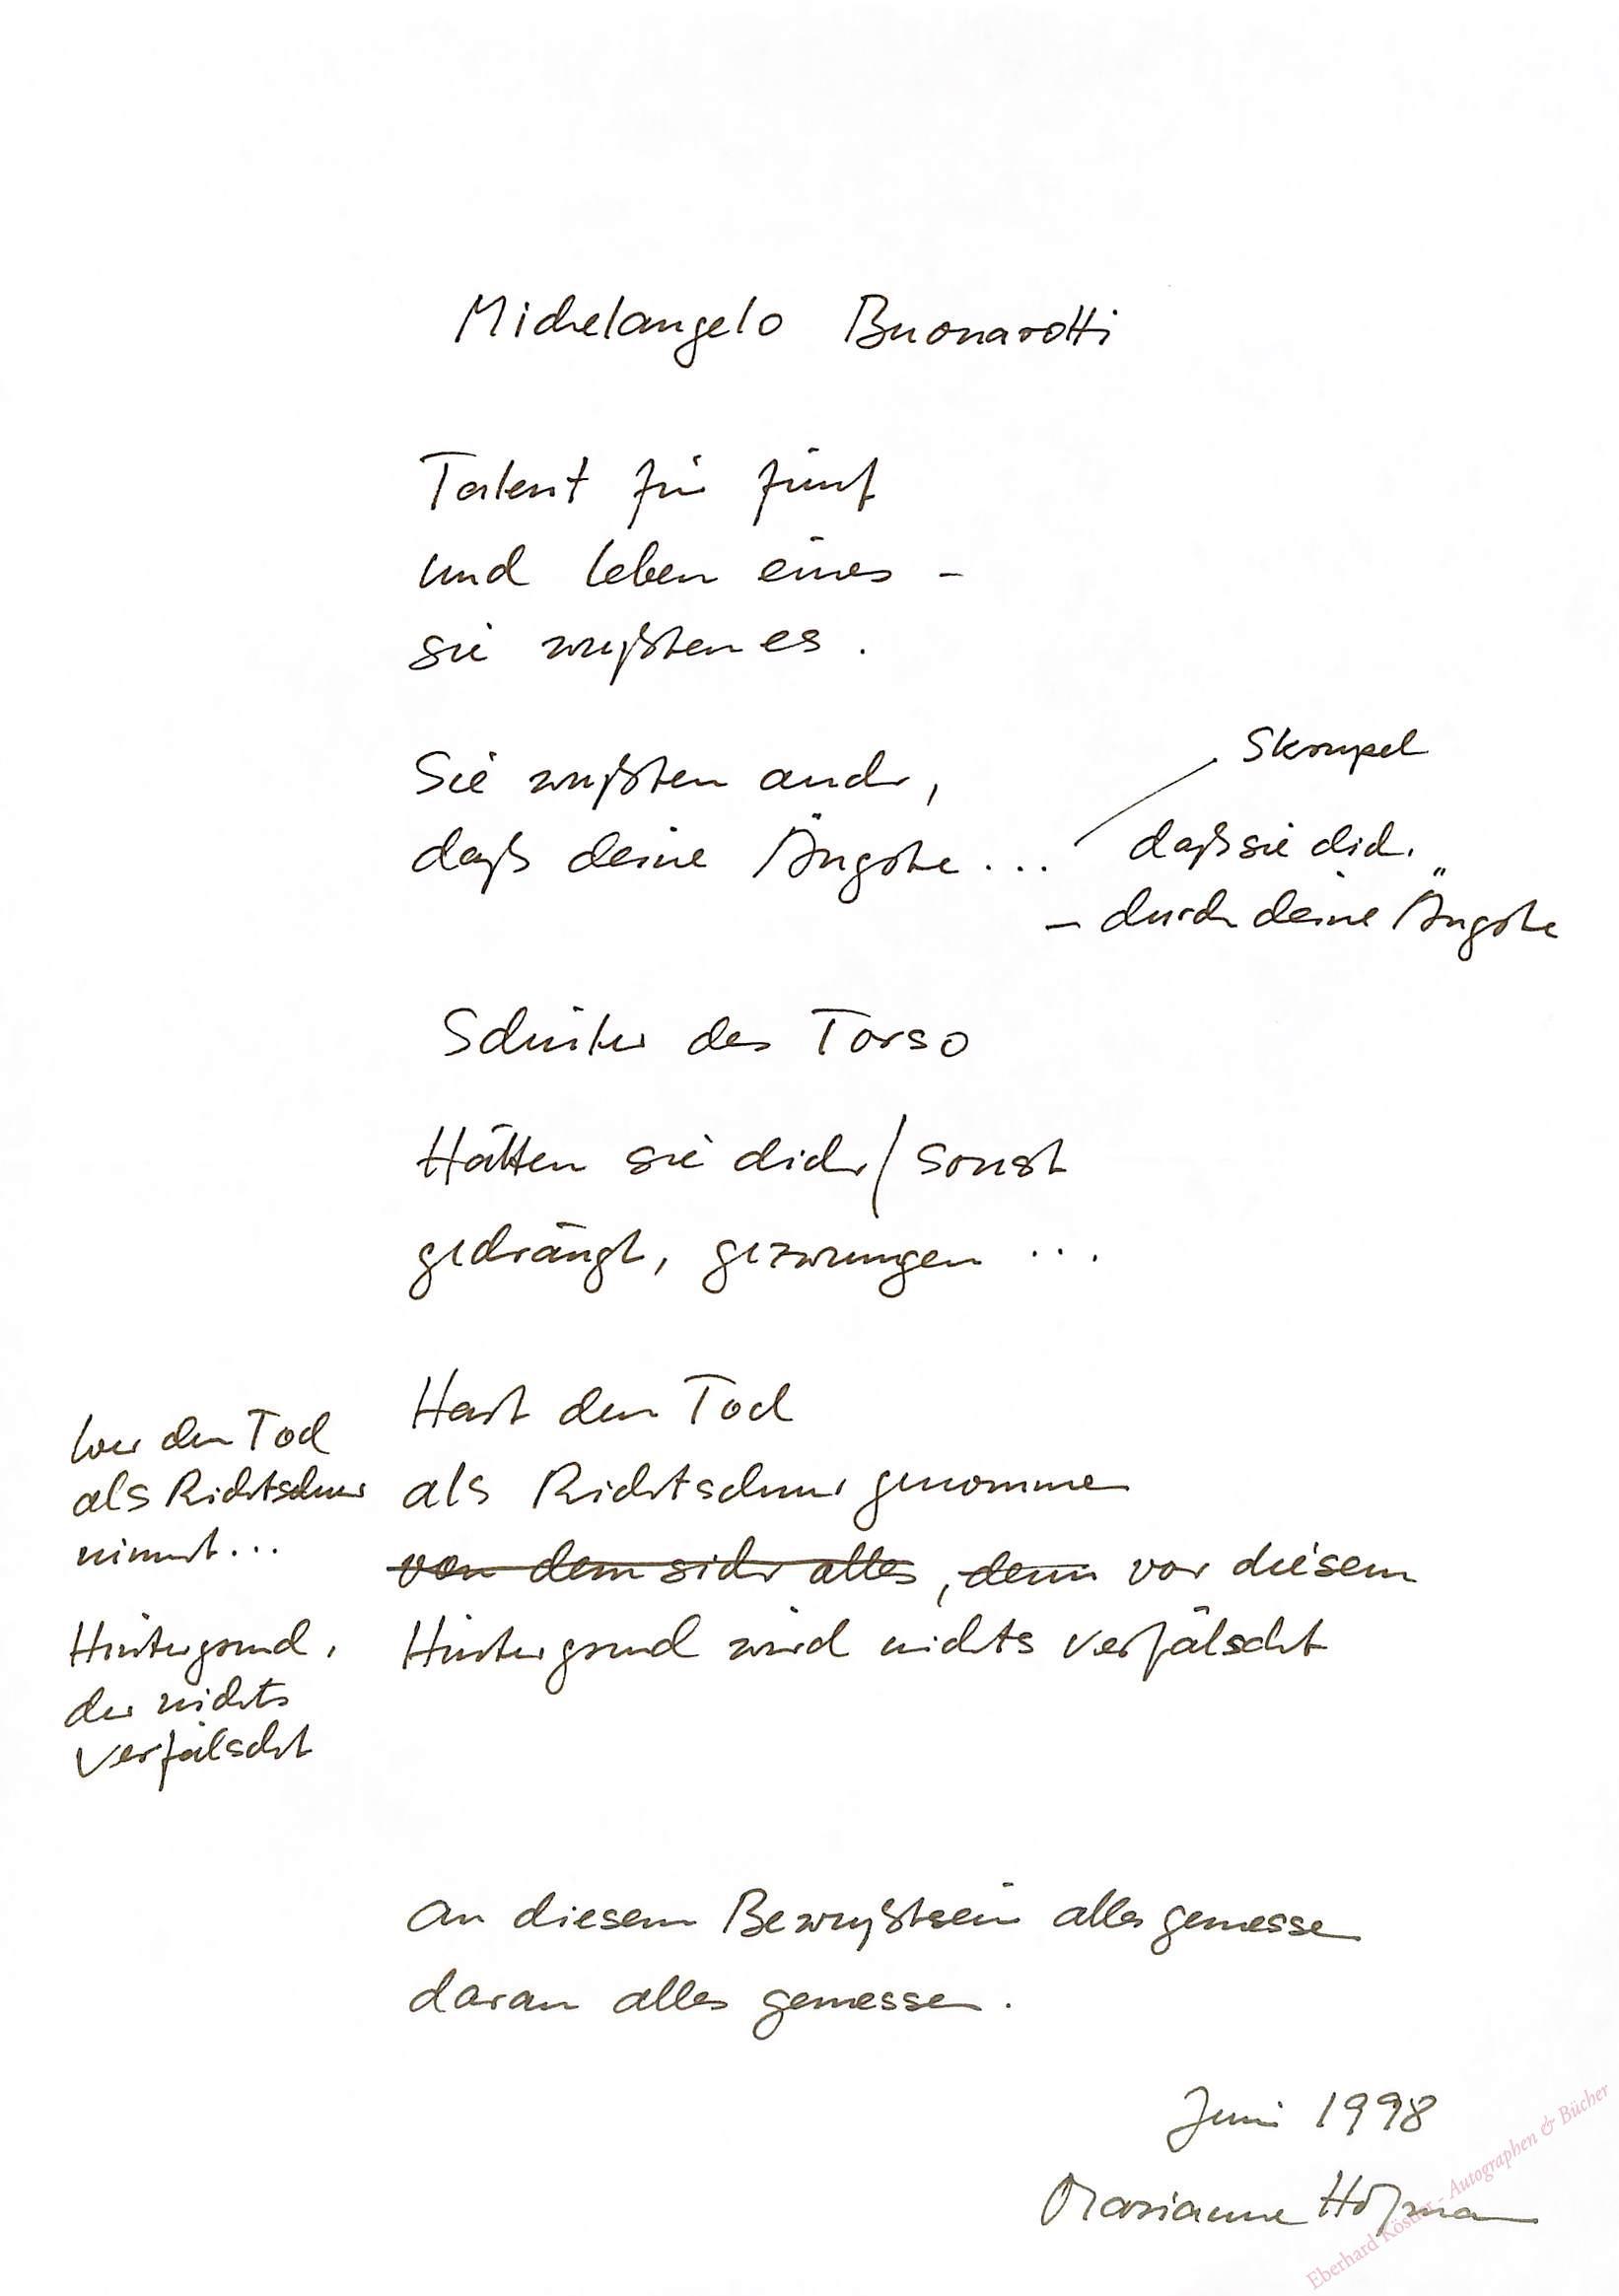 Michelangelo Buonarotti
Talent für fünf
und leben eines –
sie wußten es.
Sie wußten auch,
daß deine Ängste ...
Skrupel
daß sie dich
– durch deine Ängste
Schüler des Torso
Hätten sie dich / sonst
gedrängt, gezwungen ...
Hast den Tod
als Richtschnur genommen
von dem sich alles, denn vor diesem
Hintergrund wird nichts verfälscht
Wer den Tod
als Richtschnur
nimmt...
Hintergrund,
der nichts
verfälscht
an diesem Bewußtsein alles gemessen
daran alles gemessen.
Juni 1998
Marianne Hofmann
Eberhard Köstler - Autographen & Bücher